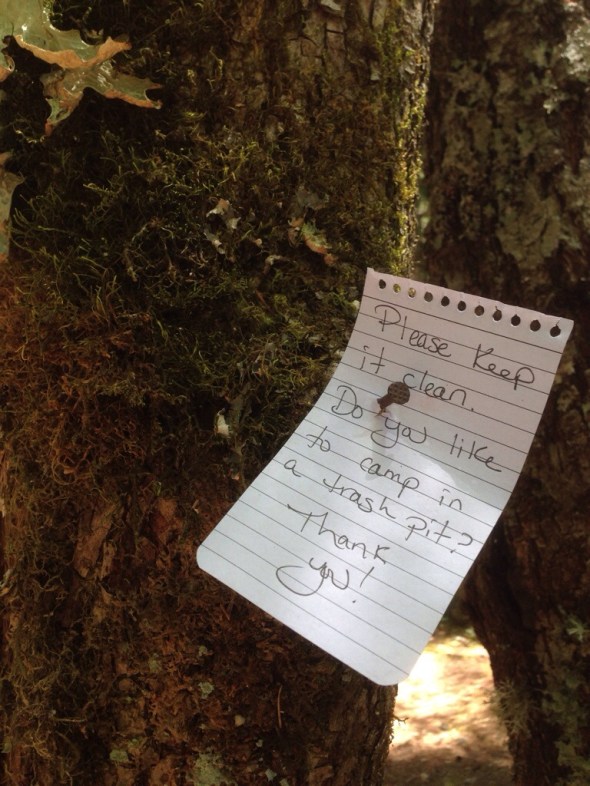 Please Keep
it clean.
Do you like
to camp in
a trash pit?
Thank
you!